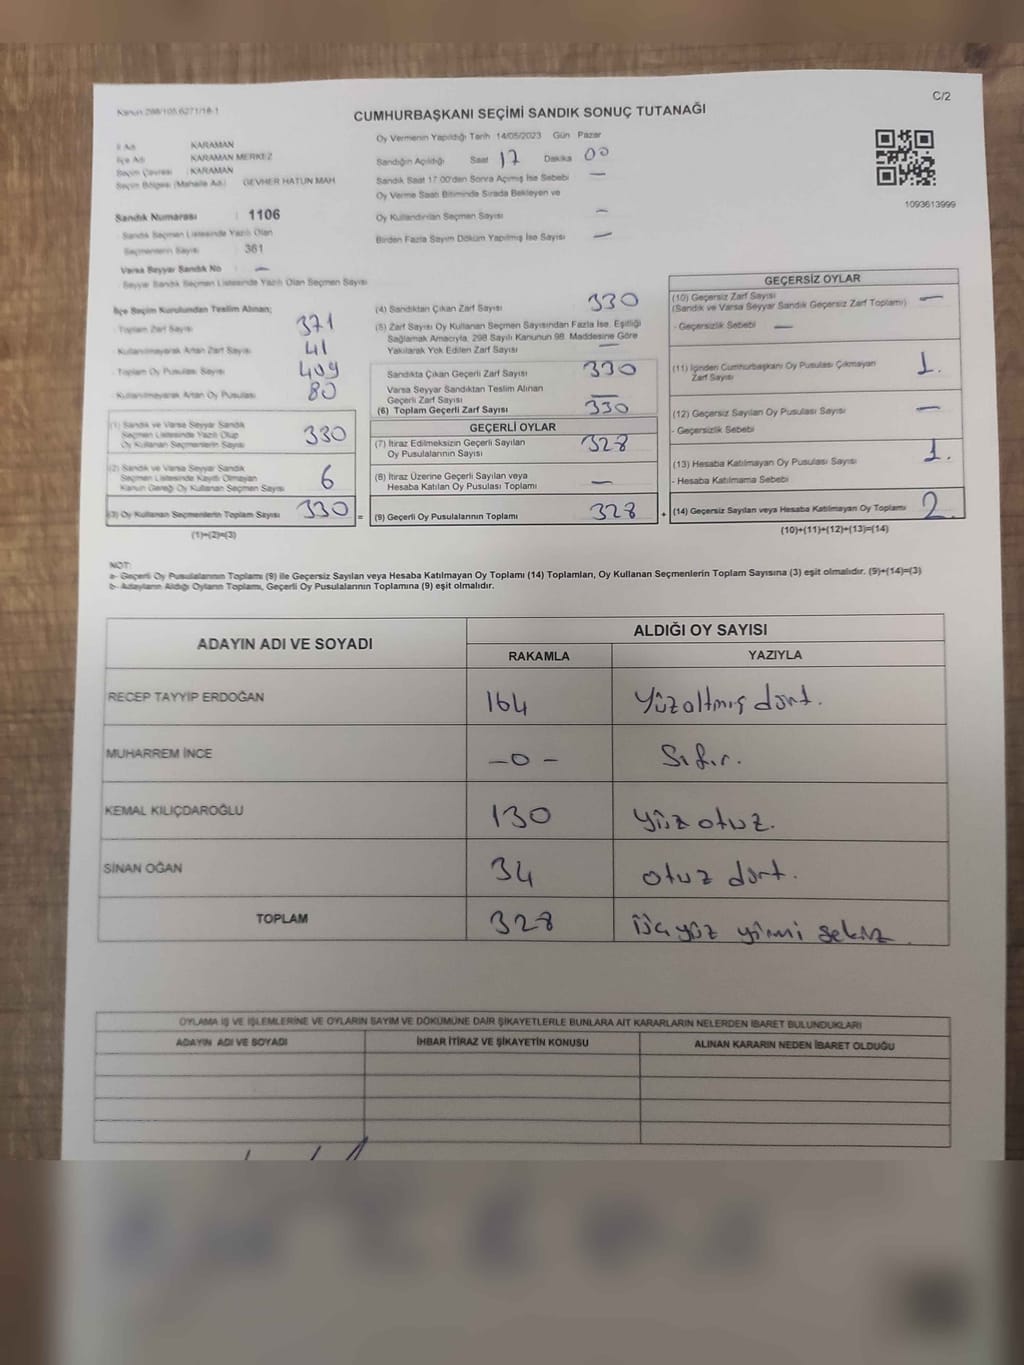 Kanun:298/105,6271/18-1
C/2
CUMHURBAŞKANI SEÇİMİ SANDIK SONUÇ TUTANAĞI
İl Adı KARAMAN
İlçe Adı KARAMAN MERKEZ
Seçim Çevresi : KARAMAN
Seçim Bölgesi (Mahalle Adı) GEVHER HATUN MAH
Sandık Numarası : 1106
Sandık Seçmen Listesinde Yazılı Olan
Seçmenlerin Sayısı : 361
Varsa Seyyar Sandık No : —
Seyyar Sandık Seçmen Listesinde Yazılı Olan Seçmen Sayısı
Oy Vermenin Yapıldığı Tarih 14/05/2023 Gün Pazar
Sandığın Açıldığı Saat 17 Dakika 00
Sandık Saat 17:00'den Sonra Açımış İse Sebebi —
Oy Verme Saati Bitiminde Sırada Bekleyen ve
Oy Kullandırılan Seçmen Sayısı —
Birden Fazla Sayım Döküm Yapılmış İse Sayısı —
1093613999
İlçe Seçim Kurulundan Teslim Alınan;
Toplam Zarf Sayısı 371
Kullanılmayarak Artan Zarf Sayısı 41
Toplam Oy Pusulası Sayısı 409
Kullanılmayarak Artan Oy Pusulası 80
(1) Sandık ve Varsa Seyyar Sandık
Seçmen Listesinde Yazılı Olup
Oy Kullanan Seçmenlerin Sayısı 330
(2) Sandık ve Varsa Seyyar Sandık
Seçmen Listesinde Kayıtlı Olmayan
Kanun Gereği Oy Kullanan Seçmen Sayısı 6
(3) Oy Kullanan Seçmenlerin Toplam Sayısı 330 =
(1)+(2)=(3)
(4) Sandıktan Çıkan Zarf Sayısı 330
(5) Zarf Sayısı Oy Kullanan Seçmen Sayısından Fazla İse, Eşitliği
Sağlamak Amacıyla, 298 Sayılı Kanunun 98. Maddesine Göre
Yakılarak Yok Edilen Zarf Sayısı —
Sandıkta Çıkan Geçerli Zarf Sayısı 330
Varsa Seyyar Sandıktan Teslim Alınan
Geçerli Zarf Sayısı —
(6) Toplam Geçerli Zarf Sayısı 330
GEÇERLİ OYLAR
(7) İtiraz Edilmeksizin Geçerli Sayılan
Oy Pusulalarının Sayısı 328
(8) İtiraz Üzerine Geçerli Sayılan veya
Hesaba Katılan Oy Pusulası Toplamı —
(9) Geçerli Oy Pusulalarının Toplamı 328 +
GEÇERSİZ OYLAR
(10) Geçersiz Zarf Sayısı —
(Sandık ve Varsa Seyyar Sandık Geçersiz Zarf Toplamı)
- Geçersizlik Sebebi —
(11) İçinden Cumhurbaşkanı Oy Pusulası Çıkmayan
Zarf Sayısı 1.
(12) Geçersiz Sayılan Oy Pusulası Sayısı —
- Geçersizlik Sebebi
(13) Hesaba Katılmayan Oy Pusulası Sayısı 1.
- Hesaba Katılmama Sebebi
(14) Geçersiz Sayılan veya Hesaba Katılmayan Oy Toplamı 2
(10)+(11)+(12)+(13)=(14)
NOT:
a- Geçerli Oy Pusulalarının Toplamı (9) ile Geçersiz Sayılan veya Hesaba Katılmayan Oy Toplamı (14) Toplamları, Oy Kullanan Seçmenlerin Toplam Sayısına (3) eşit olmalıdır. (9)+(14)=(3)
b- Adayların Aldığı Oyların Toplamı, Geçerli Oy Pusulalarının Toplamına (9) eşit olmalıdır.
ADAYIN ADI VE SOYADI
ALDIĞI OY SAYISI
RAKAMLA YAZIYLA
RECEP TAYYİP ERDOĞAN 164 Yüzaltmış dört.
MUHARREM İNCE —0— Sıfır.
KEMAL KILIÇDAROĞLU 130 yüz otuz.
SİNAN OĞAN 34 otuz dört.
TOPLAM 328 üçyüz yirmi sekiz.
OYLAMA İŞ VE İŞLEMLERİNE VE OYLARIN SAYIM VE DÖKÜMÜNE DAİR ŞİKAYETLERLE BUNLARA AİT KARARLARIN NELERDEN İBARET BULUNDUKLARI
ADAYIN ADI VE SOYADI İHBAR İTİRAZ VE ŞİKAYETİN KONUSU ALINAN KARARIN NEDEN İBARET OLDUĞU